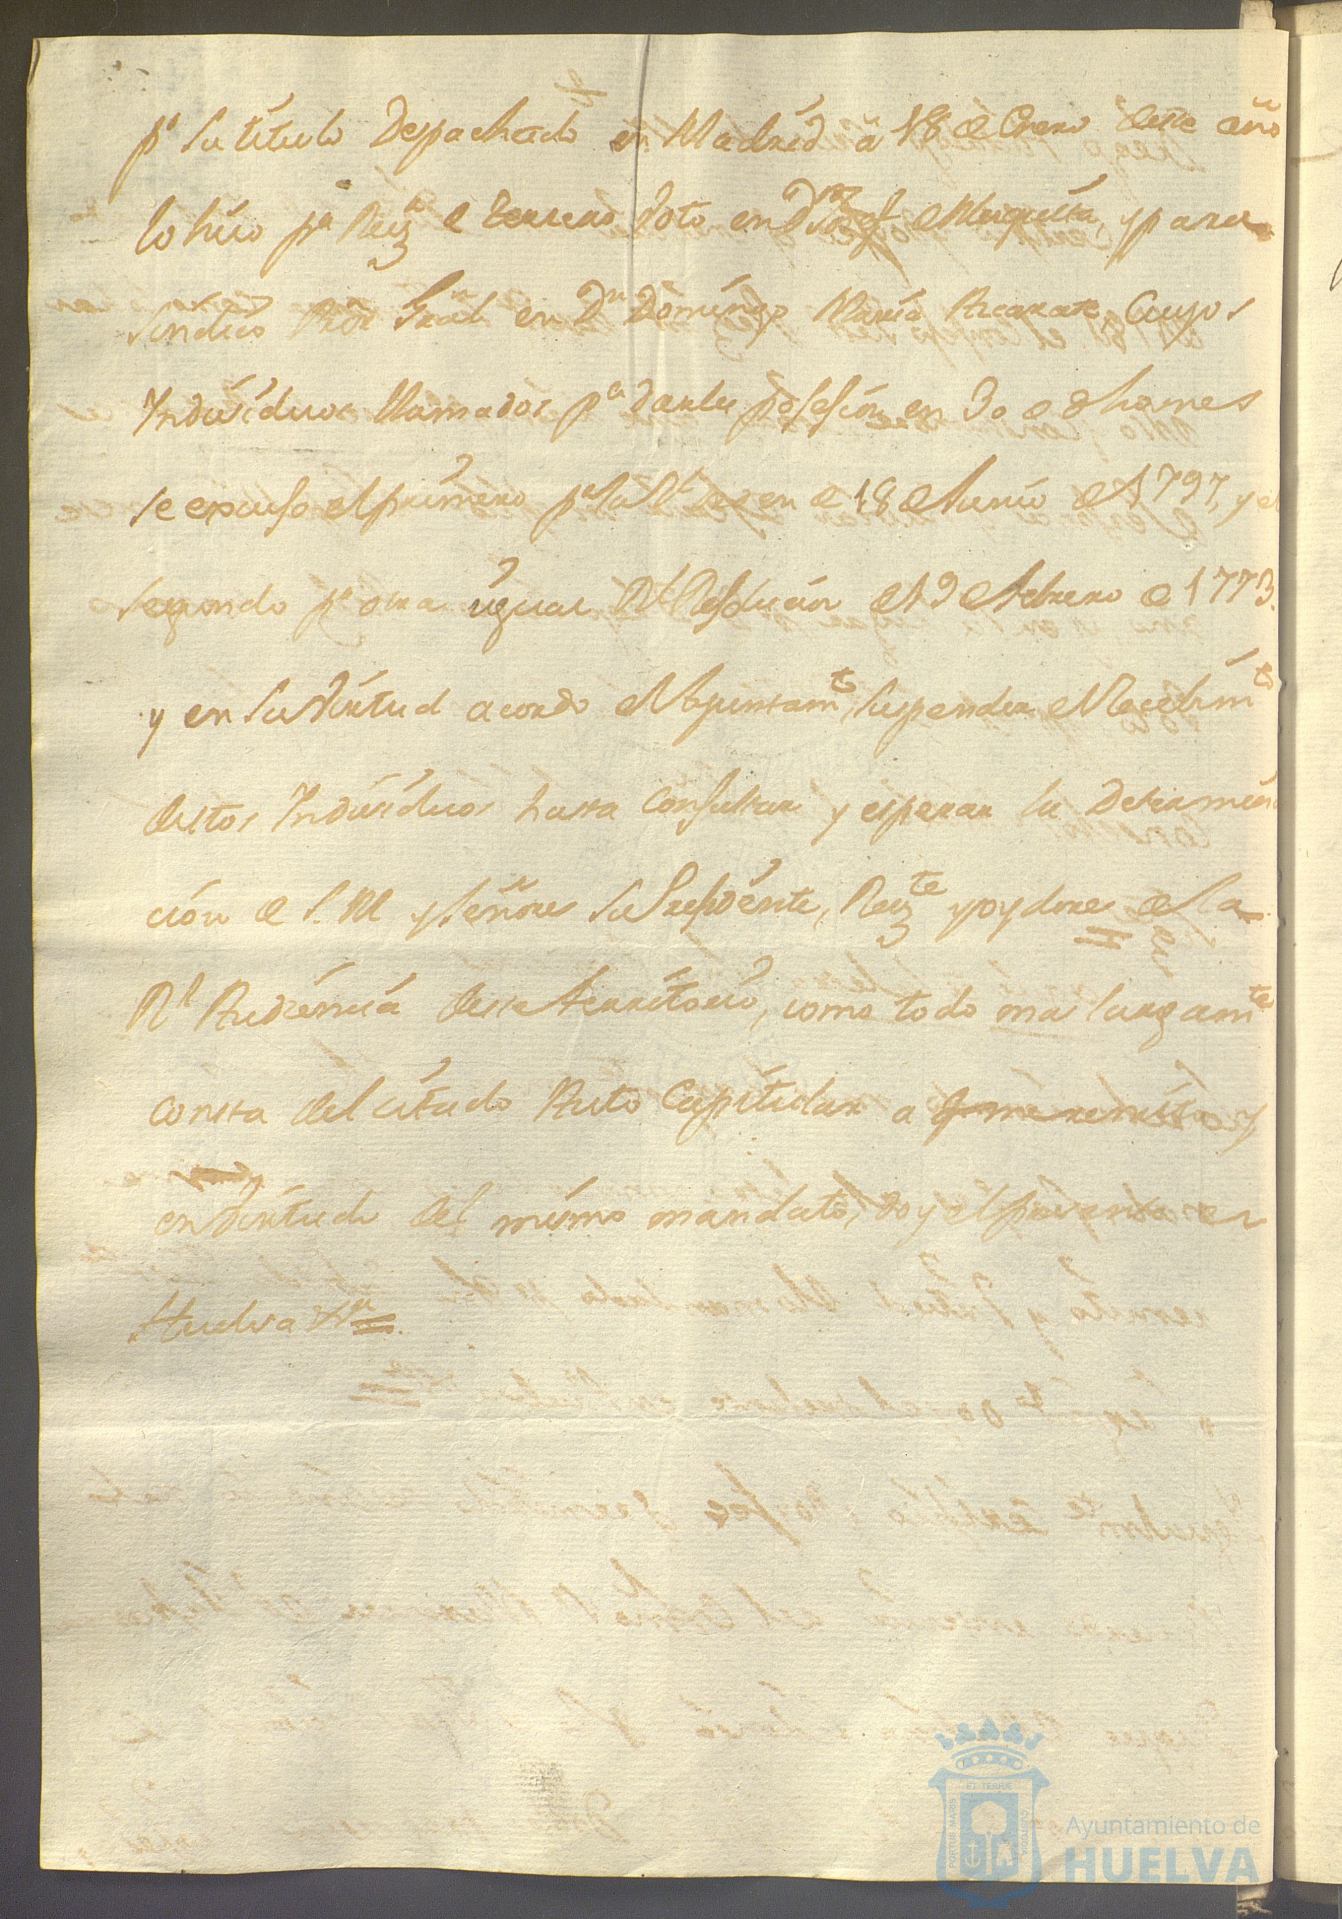 pr su titulo Despachado en Madrid a 18 de Enero deste año
lo hizo pa Rexr de tercero voto en Dn Josef de Mezquita, y para
sindico Pror Gral en Dn Domingo Maria Azcarate, Cuyos
Individuos llamados pa darles posesion en 30 de dho mes
se excuso el primero pr la Rl en de 18 de Junio de 1797, y el
segundo pr otra igual Rl Resolucion de 19 de febrero de 1773.
y en su virtud acordo el Ayuntamto suspender el Recebimto
destos Individuos hasta Consultar y esperar la Determina
cion de S. M y señores su Presidente, Regte y oydores de la
Rl Audiencia deste territorio, como todo mas largamte
consta del citado Auto Capitular a que me remito y
en virtud del mismo mandato, doy el presente en
Huelva
Ayuntamiento de
HUELVA
PORTUS MARIS ET TERRAE CUSTODIA